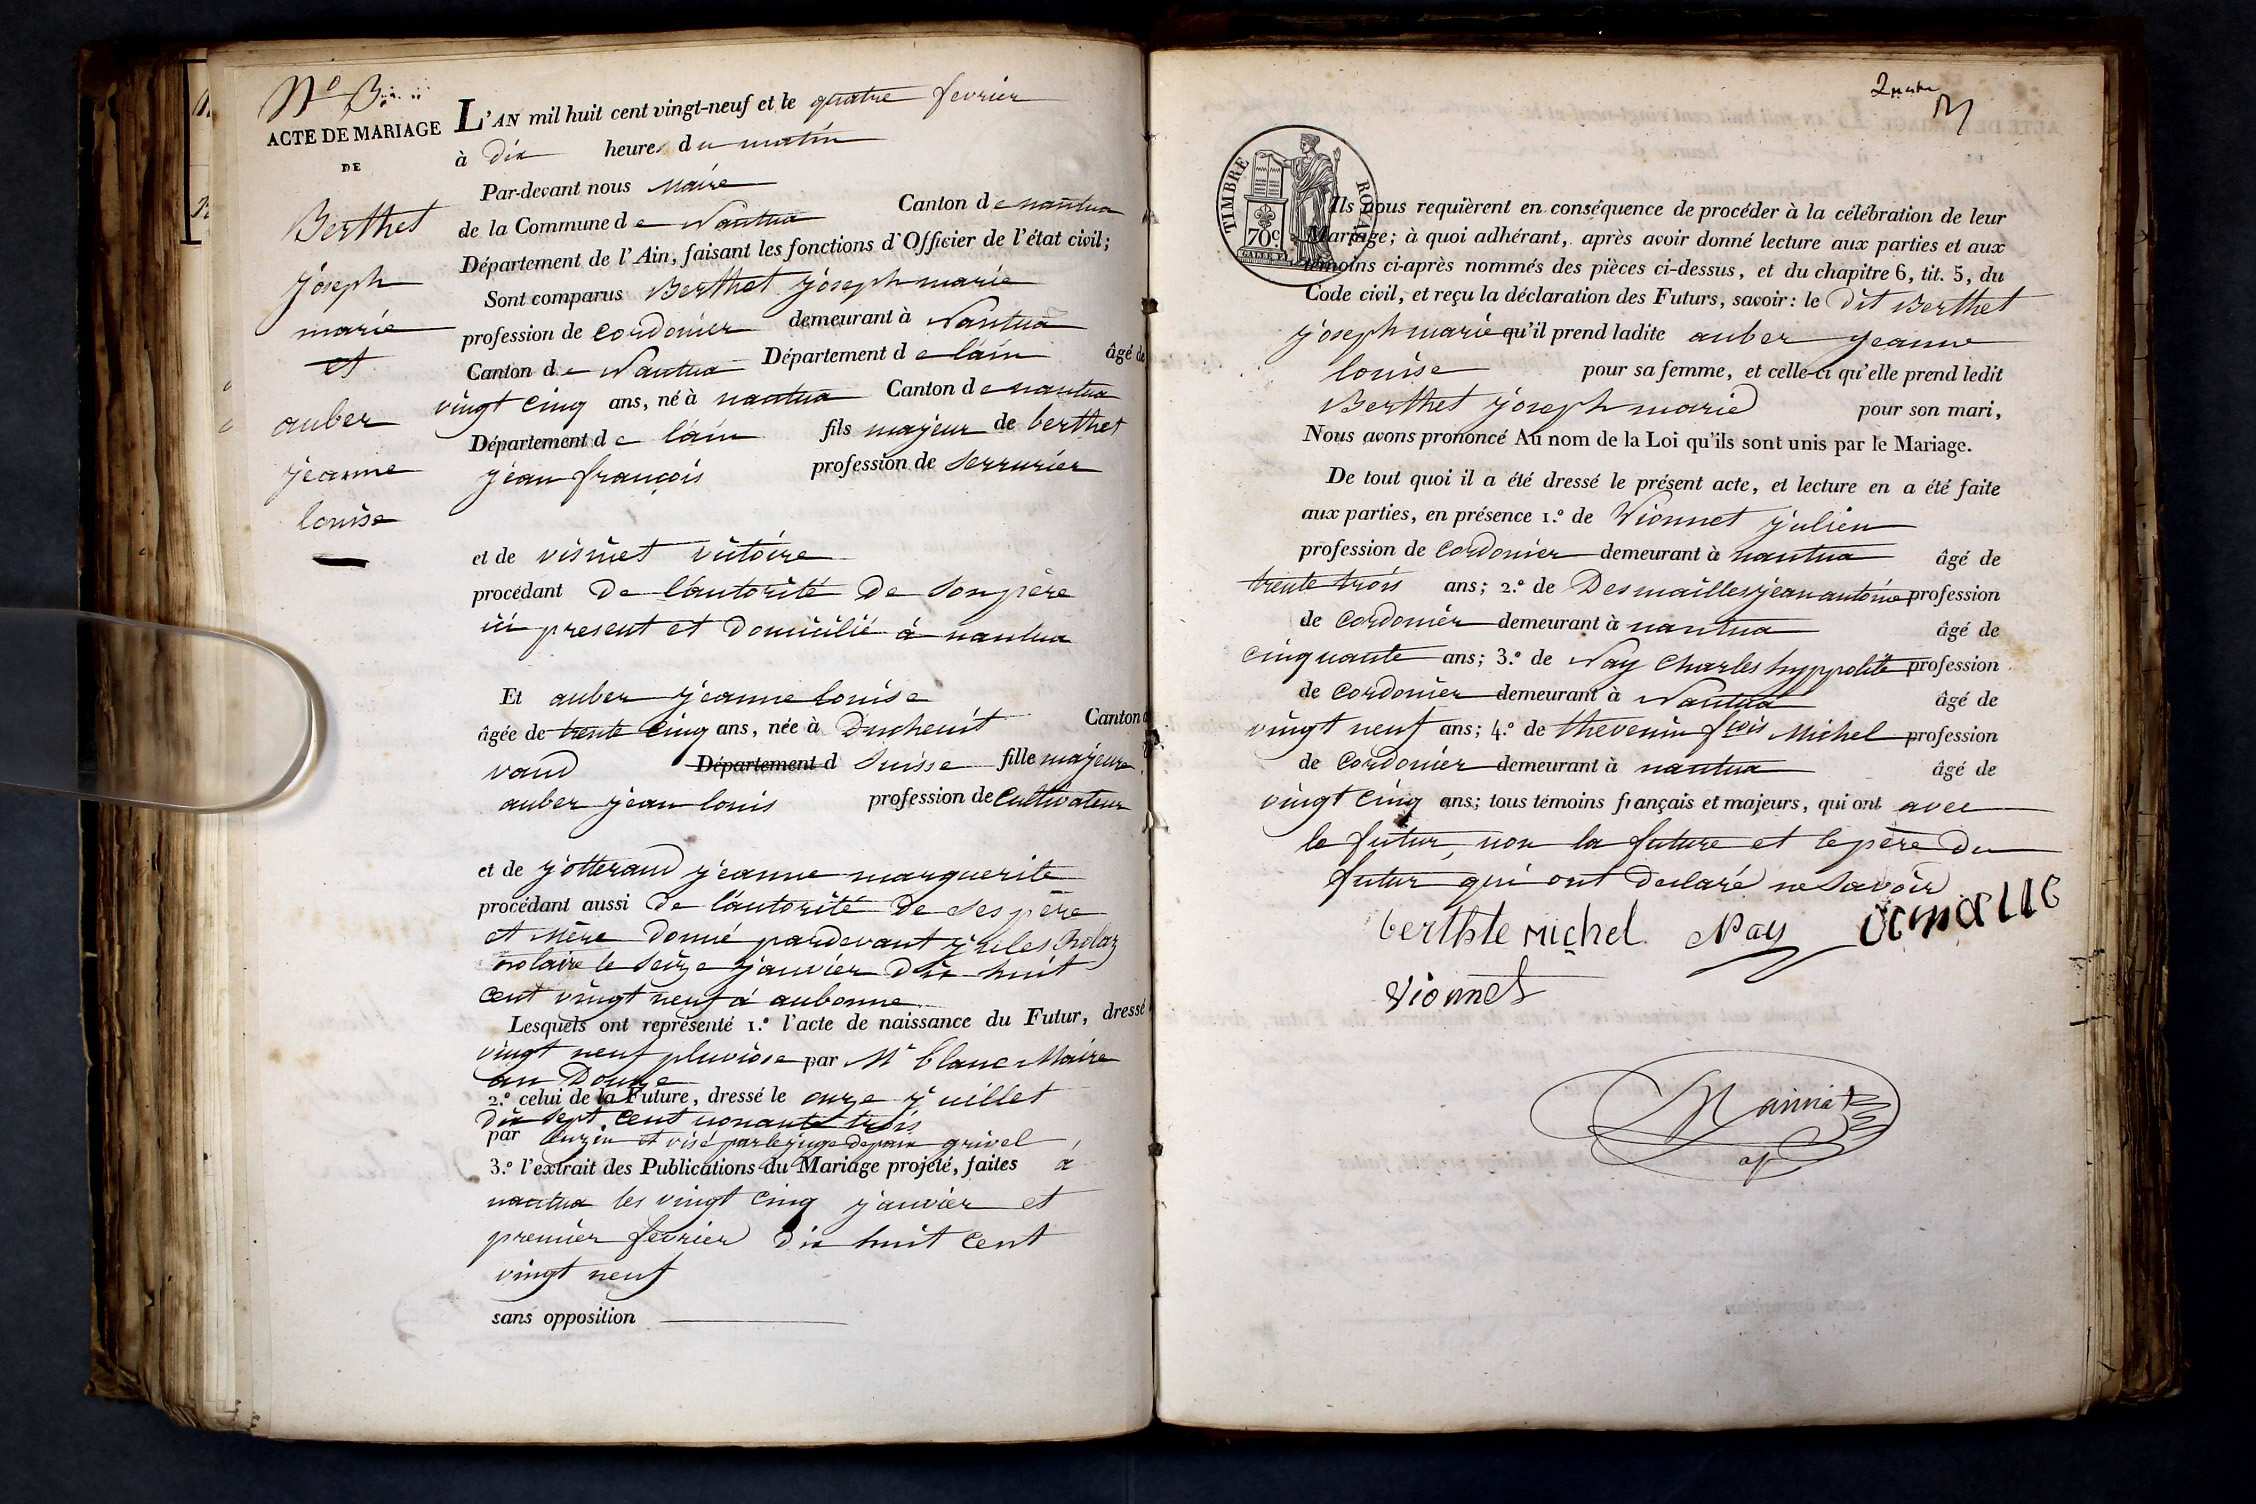 N.o 3
ACTE DE MARIAGE
DE
Berthet
joseph
marie
et
auber
jeanne
louise
L'AN mil huit cent vingt-neuf et le quatre fevrier
à dix heures du matin
Par-devant nous Maire
de la Commune de Nantua Canton de nantua
Département de l'Ain, faisant les fonctions d'Officier de l'état civil;
Sont comparus Berthet joseph marie
profession de cordonier demeurant à Nantua
Canton de Nantua Département de l'ain âgé de
vingt cinq ans, né à nantua Canton de nantua
Département de l'ain fils majeur de berthet
jean françois profession de serrurier
et de visinet victoire
procédant de l'autorité de son père
ici present et domicilié à nantua
Et auber jeanne louise
âgée de trente cinq ans, née à Canton
vaud Département d suisse fille majeure
auber jean louis profession de cultivateur
et de jotterand jeanne marguerite
procédant aussi de l'autorité de ses père
et mère donné pardevant jules Rolaz
notaire le seize janvier dix huit
cent vingt neuf à aubonne
Lesquels ont représenté 1.º l'acte de naissance du Futur, dressé
vingt neuf pluviose par Mr blanc Maire
an Douze
2.º celui de la Future, dressé le onze juillet
dix sept cent nonante trois
par et visé par le juge de paix grivel
3.º l'extrait des Publications du Mariage projeté, faites à
nantua les vingt cinq janvier et
premier fevrier dix huit cent
vingt neuf
sans opposition
TIMBRE ROYAL
70c
Ils nous requièrent en conséquence de procéder à la célébration de leur
Mariage; à quoi adhérant, après avoir donné lecture aux parties et aux
témoins ci-après nommés des pièces ci-dessus, et du chapitre 6, tit. 5, du
Code civil, et reçu la déclaration des Futurs, savoir: le dit Berthet
joseph marie qu'il prend ladite auber jeanne
louise pour sa femme, et celle-ci qu'elle prend ledit
Berthet joseph marie pour son mari,
Nous avons prononcé Au nom de la Loi qu'ils sont unis par le Mariage.
De tout quoi il a été dressé le présent acte, et lecture en a été faite
aux parties, en présence 1.º de Vionnet julien
profession de cordonier demeurant à nantua âgé de
trente trois ans; 2.º de Desmailles jean antoine profession
de cordonier demeurant à nantua âgé de
cinquante ans; 3.º de Nay Charles hyppolite profession
de cordonier demeurant à Nantua âgé de
vingt neuf ans; 4.º de thevenin fçois Michel profession
de cordonier demeurant à nantua âgé de
vingt cinq ans; tous témoins français et majeurs, qui ont avec
le futur, non la future et le père du
futur qui ont declaré ne savoir
Michel Nay
Vionnet